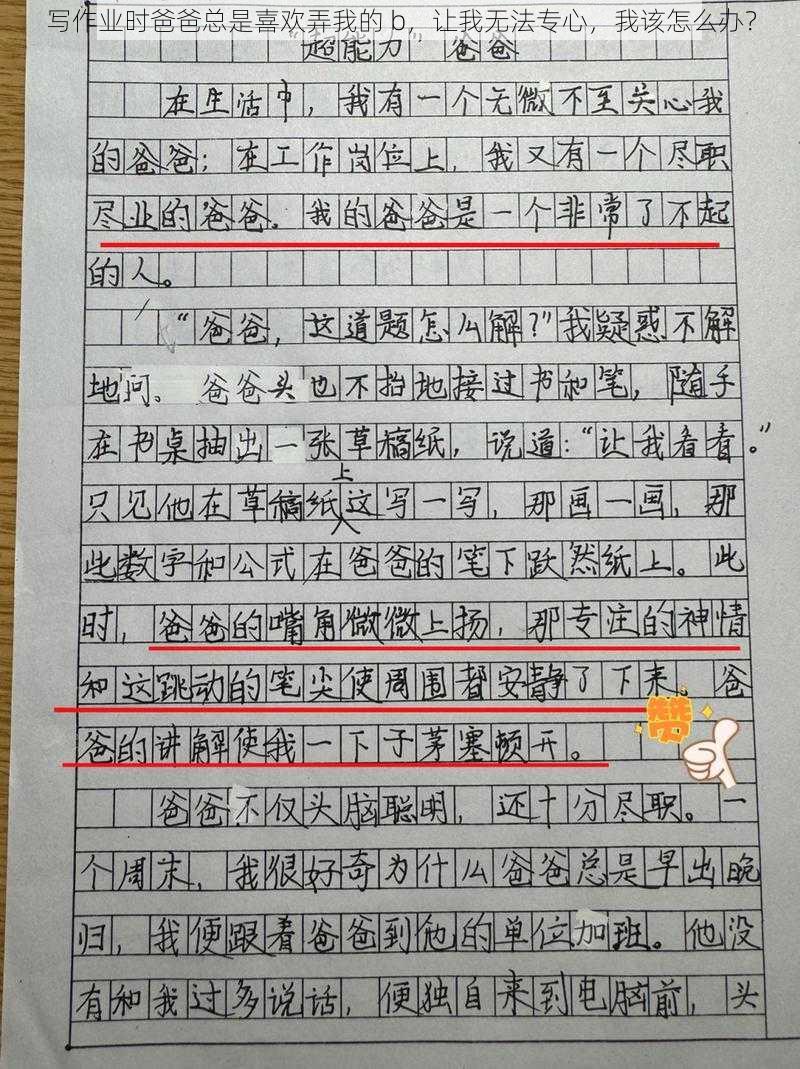 写作业时爸爸总是喜欢弄我的 b，让我无法专心，我该怎么办？
“超能力”爸爸
在生活中，我有一个无微不至关心我
的爸爸；在工作岗位上，我又有一个尽职
尽业的爸爸。我的爸爸是一个非常了不起
的人。
“爸爸，这道题怎么解？”我疑惑不解
地问。爸爸头也不抬地接过书和笔，随手
在书桌抽出一张草稿纸，说道：“让我看看。”
只见他在草稿纸上这写一写，那画一画，那
些数字和公式在爸爸的笔下跃然纸上。此
时，爸爸的嘴角微微上扬，那专注的神情
和这跳动的笔尖使周围都安静了下来。爸
爸的讲解使我一下子茅塞顿开。
赞
爸爸不仅头脑聪明，还十分尽职。一
个周末，我很好奇为什么爸爸总是早出晚
归，我便跟着爸爸到他的单位加班。他没
有和我过多说话，便独自来到电脑前，头